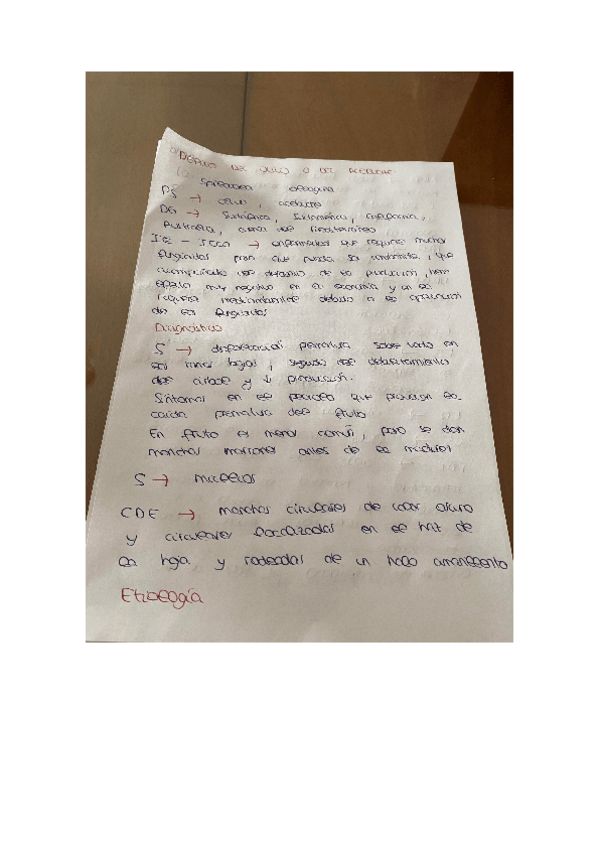 REPILO DEL OLIVO O DEL ACEBUCHE
Spilocaea oleagina
PS → olivo, acebuche
DG → Sudáfrica, Sudamérica, California,
Australia, zonas del Mediterráneo
→ enfermedad que requiere muchos
fungicidas para que pueda ser controlada, que
de su producción, tiene
efecto muy negativo en la economía y un
medioambiental debido a la
de los fungicidas
Diagnóstico
S → defoliación prematura sobre todo en
las ramas bajas, seguido del debilitamiento
del árbol y ↓ producción.
Síntomas en el peciolo que provocan la
caída prematura del fruto
En fruto es menos común, pero se dan
manchas marrones antes de la madurez
S → micelios
CDE → manchas circulares de color oscuro
y circulares localizadas en el haz de
la hoja y rodeadas de un halo amarillento
Etiología